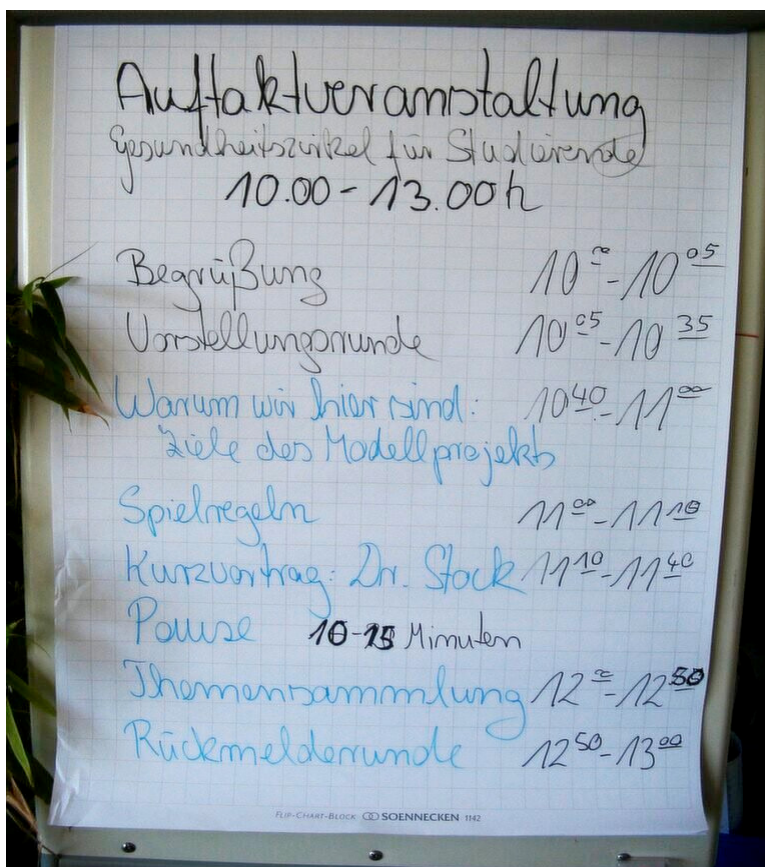 Auftaktveranstaltung
Gesundheitszirkel für Studierende
10.00 - 13.00 h
Begrüßung 10⁰⁰ - 10⁰⁵
Vorstellungsrunde 10⁰⁵ - 10³⁵
Warum wir hier sind: 10⁴⁰ - 11⁰⁰
Ziele des Modellprojekts
Spielregeln 11⁰⁰ - 11¹⁰
Kurzvortrag: Dr. Stock 11¹⁰ - 11⁴⁰
Pause 10-15 Minuten
Themensammlung 12⁰⁰ - 12⁵⁰
Rückmelderunde 12⁵⁰ - 13⁰⁰
FLIP-CHART-BLOCK SOENNECKEN 1142